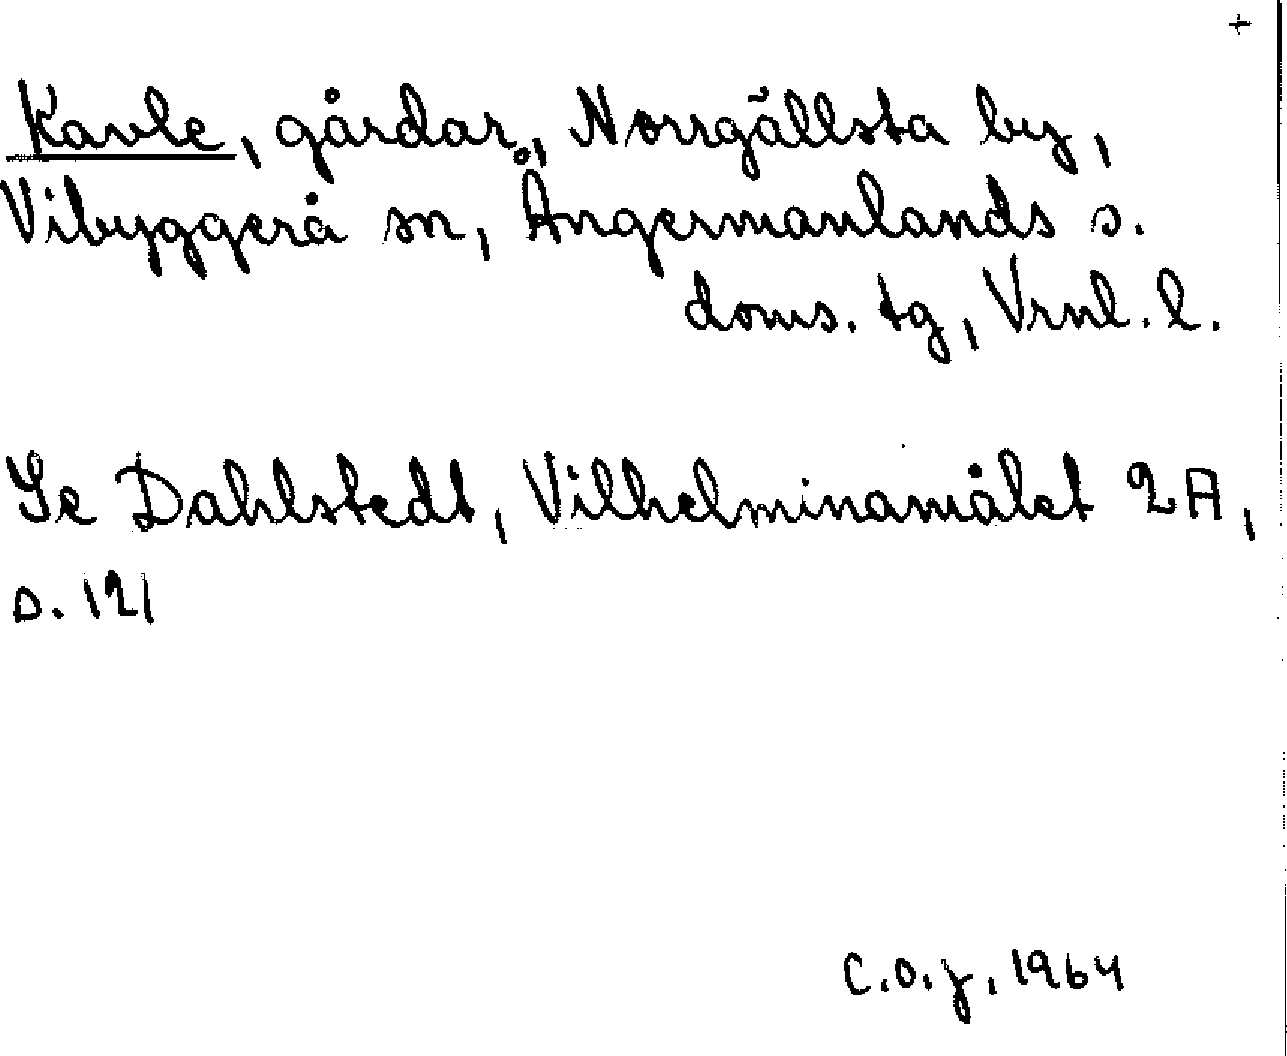 +
Kavle, gårdar, Norrgällsta by,
Vibyggerå sn, Ångermanlands s.
doms. tg, Vrnl. l.
Se Dahlstedt, Vilhelminamålet 2A,
s. 121
C.O.J. 1964